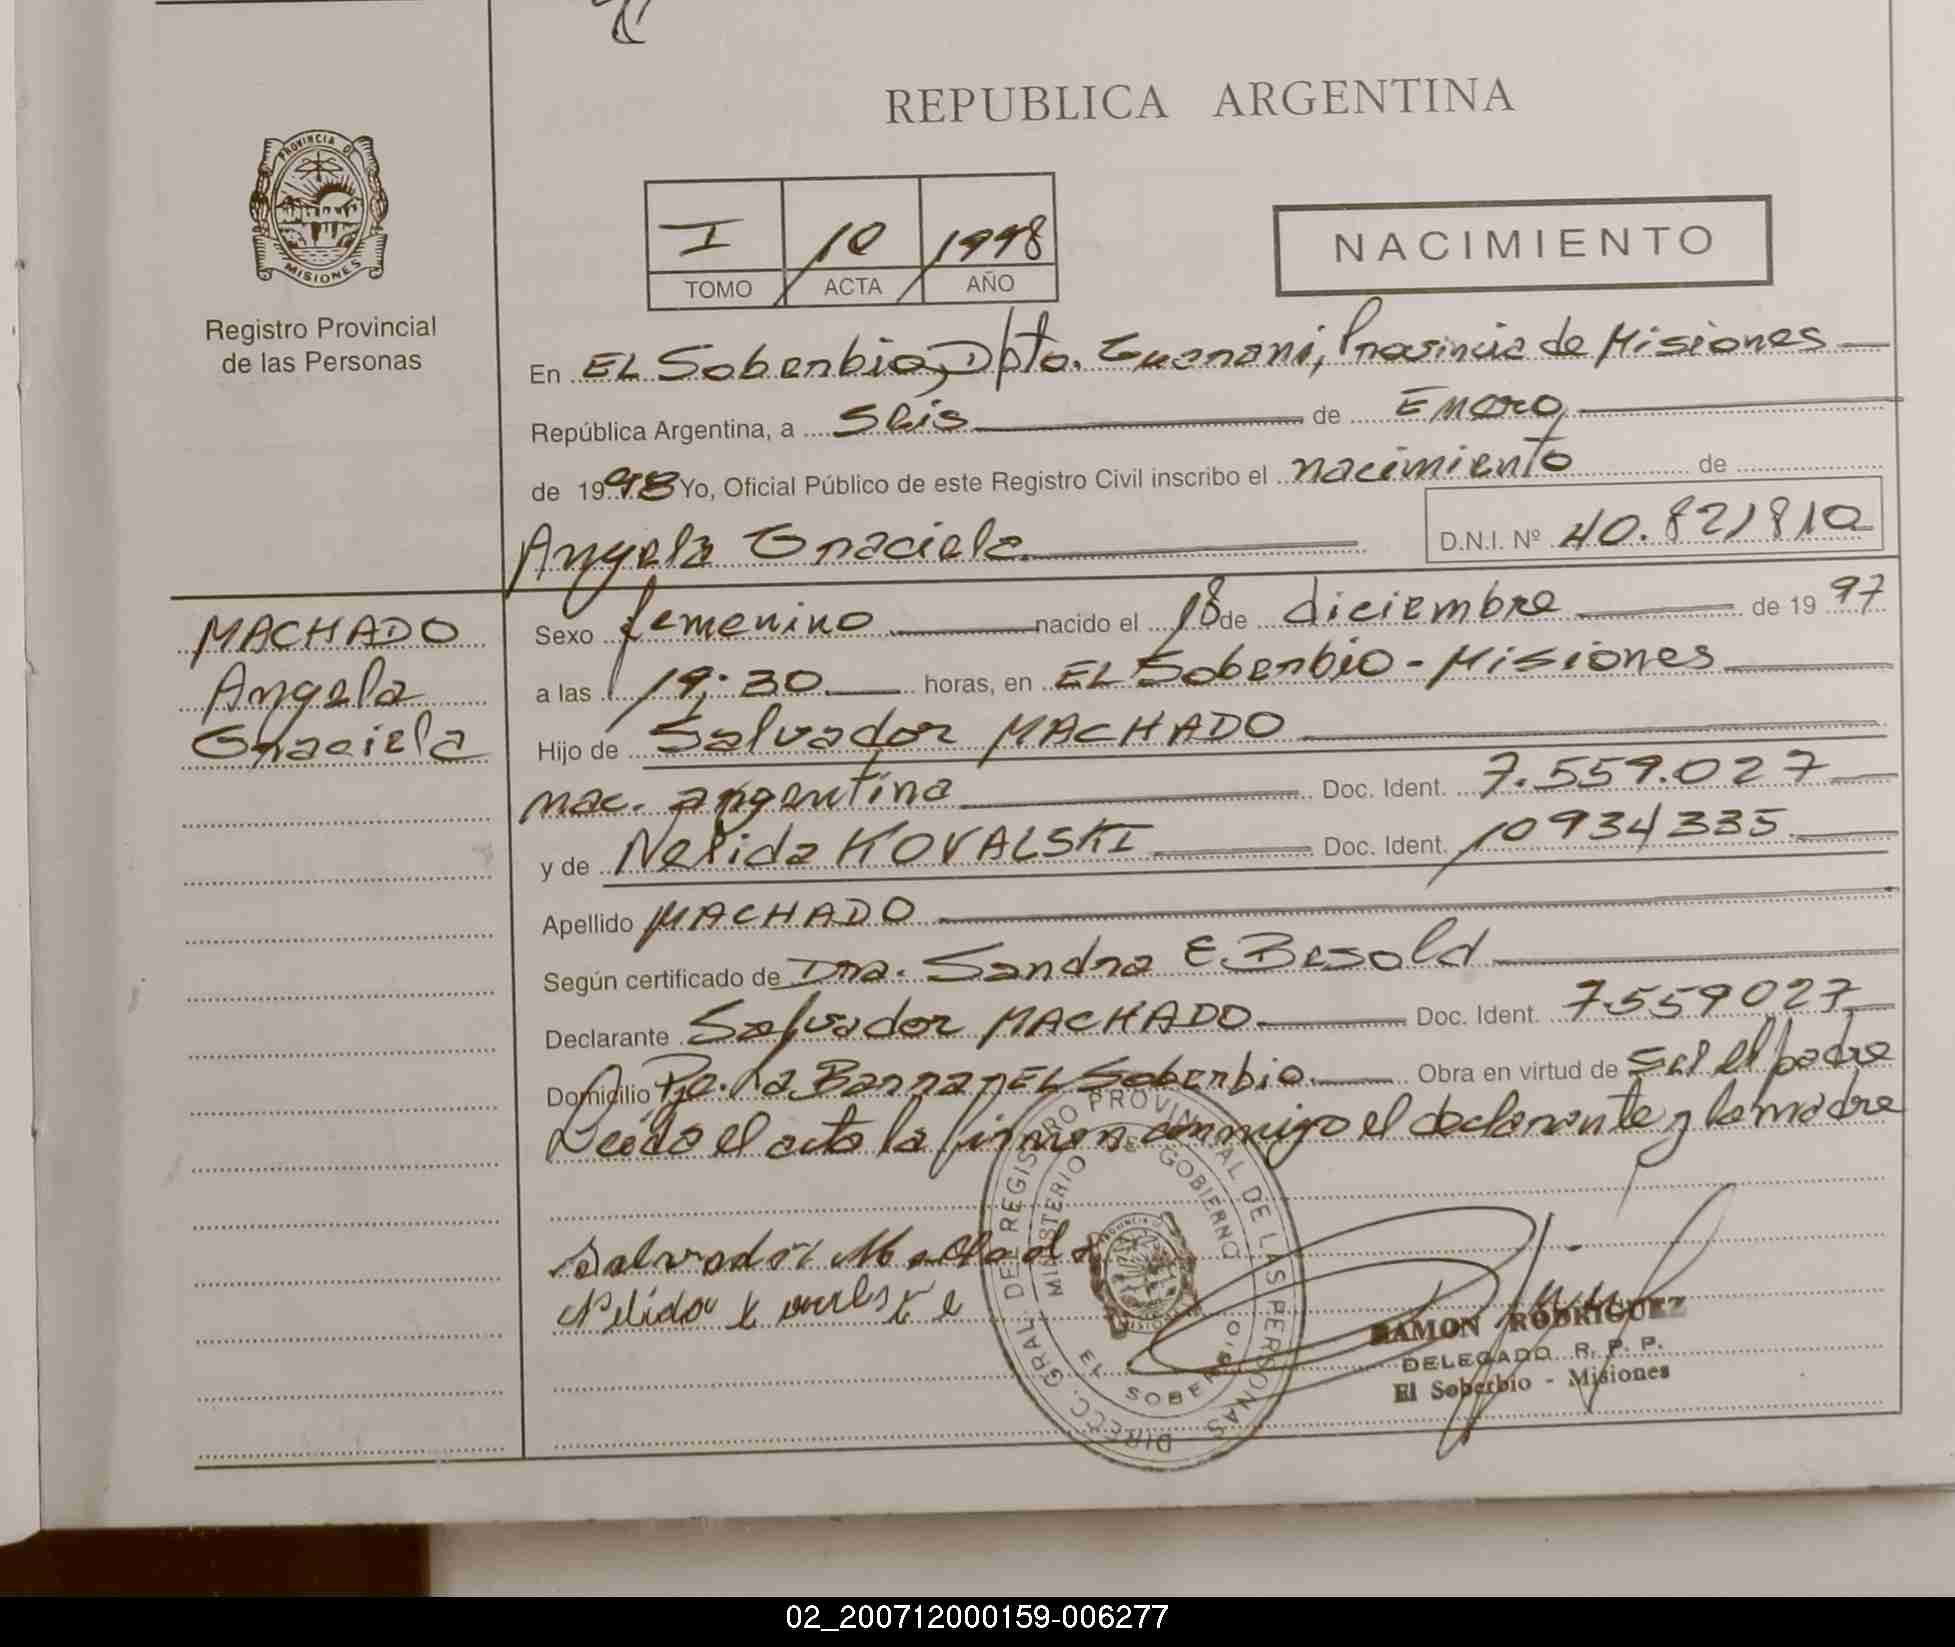 REPUBLICA ARGENTINA
PROVINCIA DE
MISIONES
Registro Provincial
de las Personas
I 10 1998
TOMO ACTA AÑO
NACIMIENTO
En EL Soberbio, Dpto. Guarani, Provincia de Misiones
República Argentina, a Seis de Enero
de 1998 Yo, Oficial Público de este Registro Civil inscribo el nacimiento de
Angela Graciela D.N.I. Nº 40.821810
MACHADO
Angela
Graciela
Sexo femenino nacido el 18 de diciembre de 1997
a las 19:30 horas, en EL Soberbio - Misiones
Hijo de Salvador MACHADO
nac. argentina Doc. Ident. 7.559.027
y de Nelida KOVALSKI Doc. Ident. 10934335
Apellido MACHADO
Según certificado de Dra. Sandra E Besold
Declarante Salvador MACHADO Doc. Ident. 7.559027
Domicilio Pje. La Barra EL Soberbio Obra en virtud de ser el padre
Leida el acta la firman conmigo el declarante y la madre
Salvador Machado
Nelida
DIRECC. GRAL. DEL REGISTRO PROVINCIAL DE LAS PERSONAS
MINISTERIO DE GOBIERNO
EL SOBERBIO
RAMON RODRIGUEZ
DELEGADO R. P. P.
El Soberbio - Misiones
02_200712000159-006277